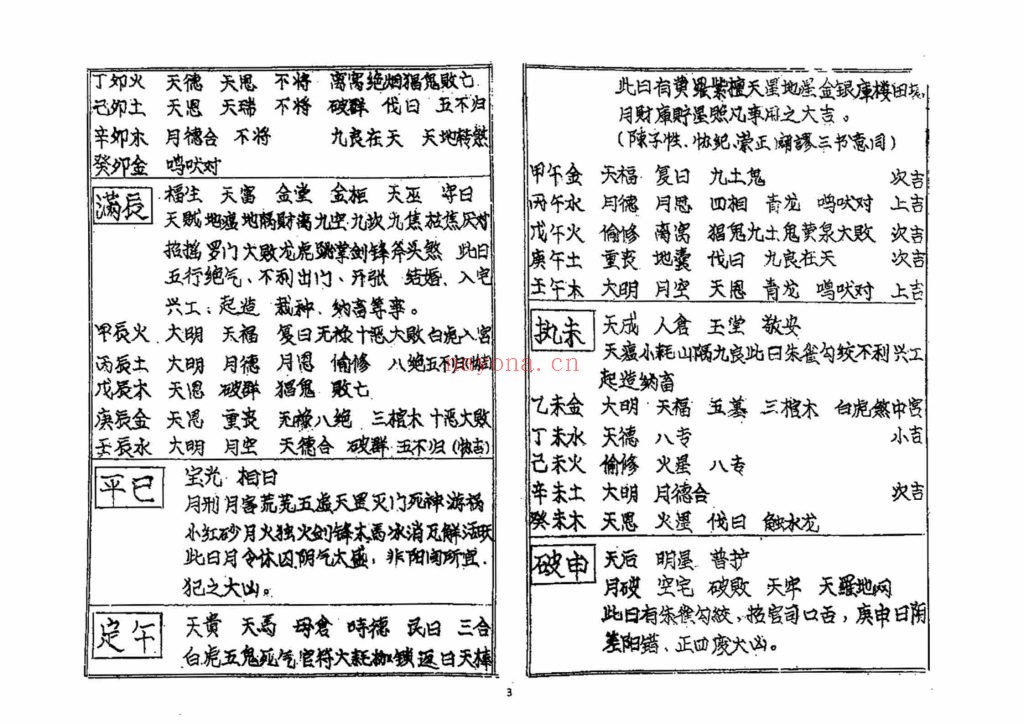 丁卯火 天德 天恩 不将 离窝绝烟猖鬼败亡
己卯土 天恩 天瑞 不将 破群 伐日 五不归
辛卯木 月德合 不将 九良在天 天地转煞
癸卯金 鸣吠对
满辰 福生 天富 金堂 金柜 天巫 守日
天贼地 地隔财离九空九坎九焦 焦厌对
招摇罗门大败龙虎跳 剑锋斧头煞 此日
五行绝气、不利出门、开张 结婚、入宅
兴工;起造 栽种、纳畜等事。
甲辰火 大明 天福 复日无禄十恶大败白虎入宫
丙辰土 大明 月德 月恩 偷修 八绝五不归
戊辰木 天恩 破群 猖鬼 败亡
庚辰金 天恩 重丧 无禄八绝 三棺木 十恶大败
壬辰水 大明 月空 天德合 破群 五不归(次吉)
平巳 宝光 相日
月刑月害荒芜五虚天罡灭门死神游祸
小红砂月火独火剑锋木马冰消瓦解
此日月令休囚阴气太盛,非阳间所宜.
犯之大凶。
定午 天贵 天马 母仓 时德 民日 三合
白虎五鬼死气官符大耗枷锁 日天棒
此日有黄羅紫檀天星地星金銀庫楼田
月財庫貯星照凡事用之大吉。
(陳子性、 纪、崇正闢謬三书意同)
甲午金 天福 复日 九土鬼 次吉
丙午水 月德 月恩 四相 青龙 鸣吠对 上吉
戊午火 偷修 离窝 猖鬼九土鬼黄泉大败 次吉
庚午土 重丧 地囊 伐日 九良在天 次吉
壬午木 大明 月空 天恩 青龙 鸣吠对 上吉
执未 天成 人倉 玉堂 敬安
天瘟小耗山隔九良此日朱雀勾绞不利兴工
起造纳畜
乙未金 大明 天福 五墓 三棺木 白虎煞中宫
丁未水 天德 八专 小吉
己未火 偷修 火星 八专
辛未土 大明 月德合 次吉
癸未木 天恩 火星 伐日 触水龙
破申 天后 明星 普护
月破 空宅 破败 天牢 天羅地网
此日有朱雀勾绞,招官司口舌,庚申日阴
差阳错、正四废大凶。
3